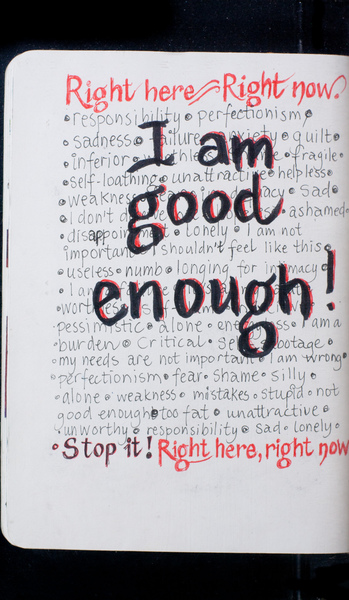 Right here Right now
• responsibility • perfectionism •
• sadness • failure • anxiety • guilt •
inferior • fragile •
• self-loathing • unattractive • helpless •
• weakness • Sad •
• I don't • ashamed
• disappointment • Lonely • I am not
important • I shouldn't feel like this •
• useless • numb • longing for intimacy •
• I am
pessimistic • alone • I am a
burden • Critical • sabotage •
• my needs are not important • I am wrong •
• perfectionism • fear • Shame • Silly •
• alone • weakness • mistakes • stupid • not
good enough • too fat • unattractive •
• unworthy • responsibility • Sad • lonely •
• Stop it! Right here, right now
I am
good
enough!